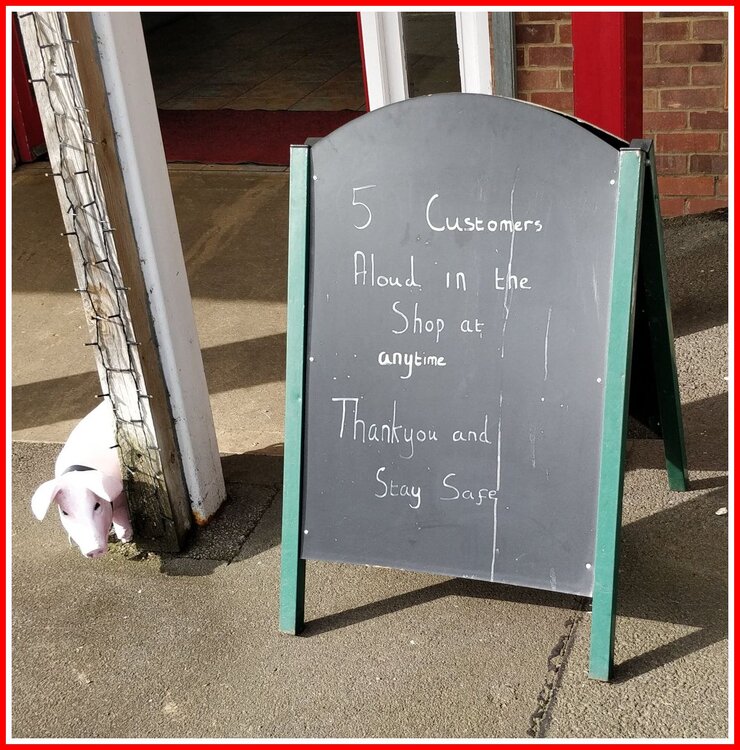 5 Customers
Aloud in the
Shop at
anytime
Thankyou and
Stay Safe